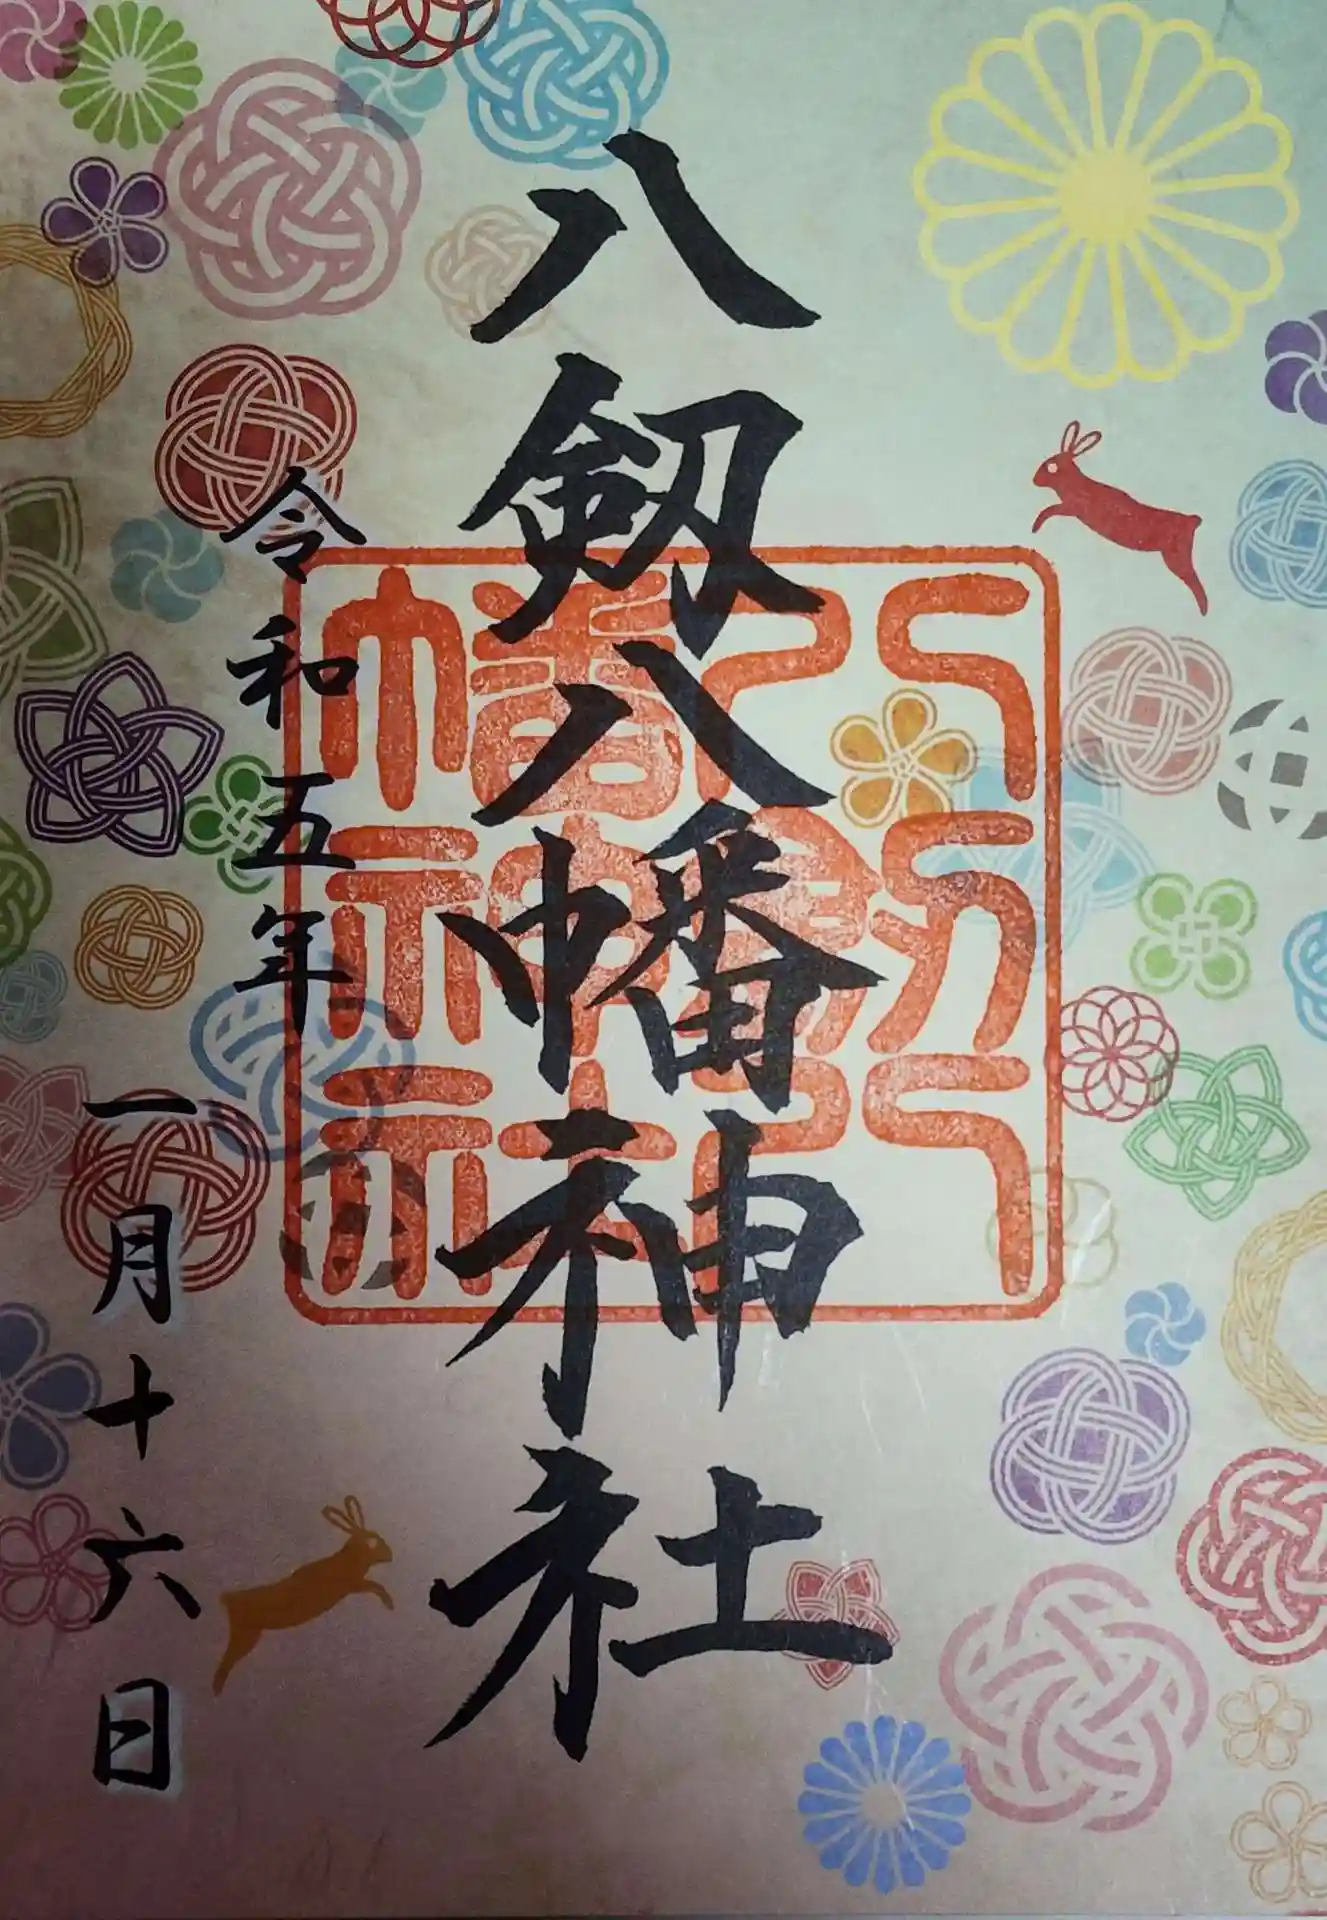 八剱八幡神社
八剱八
幡神社
令和五年
一月十六日